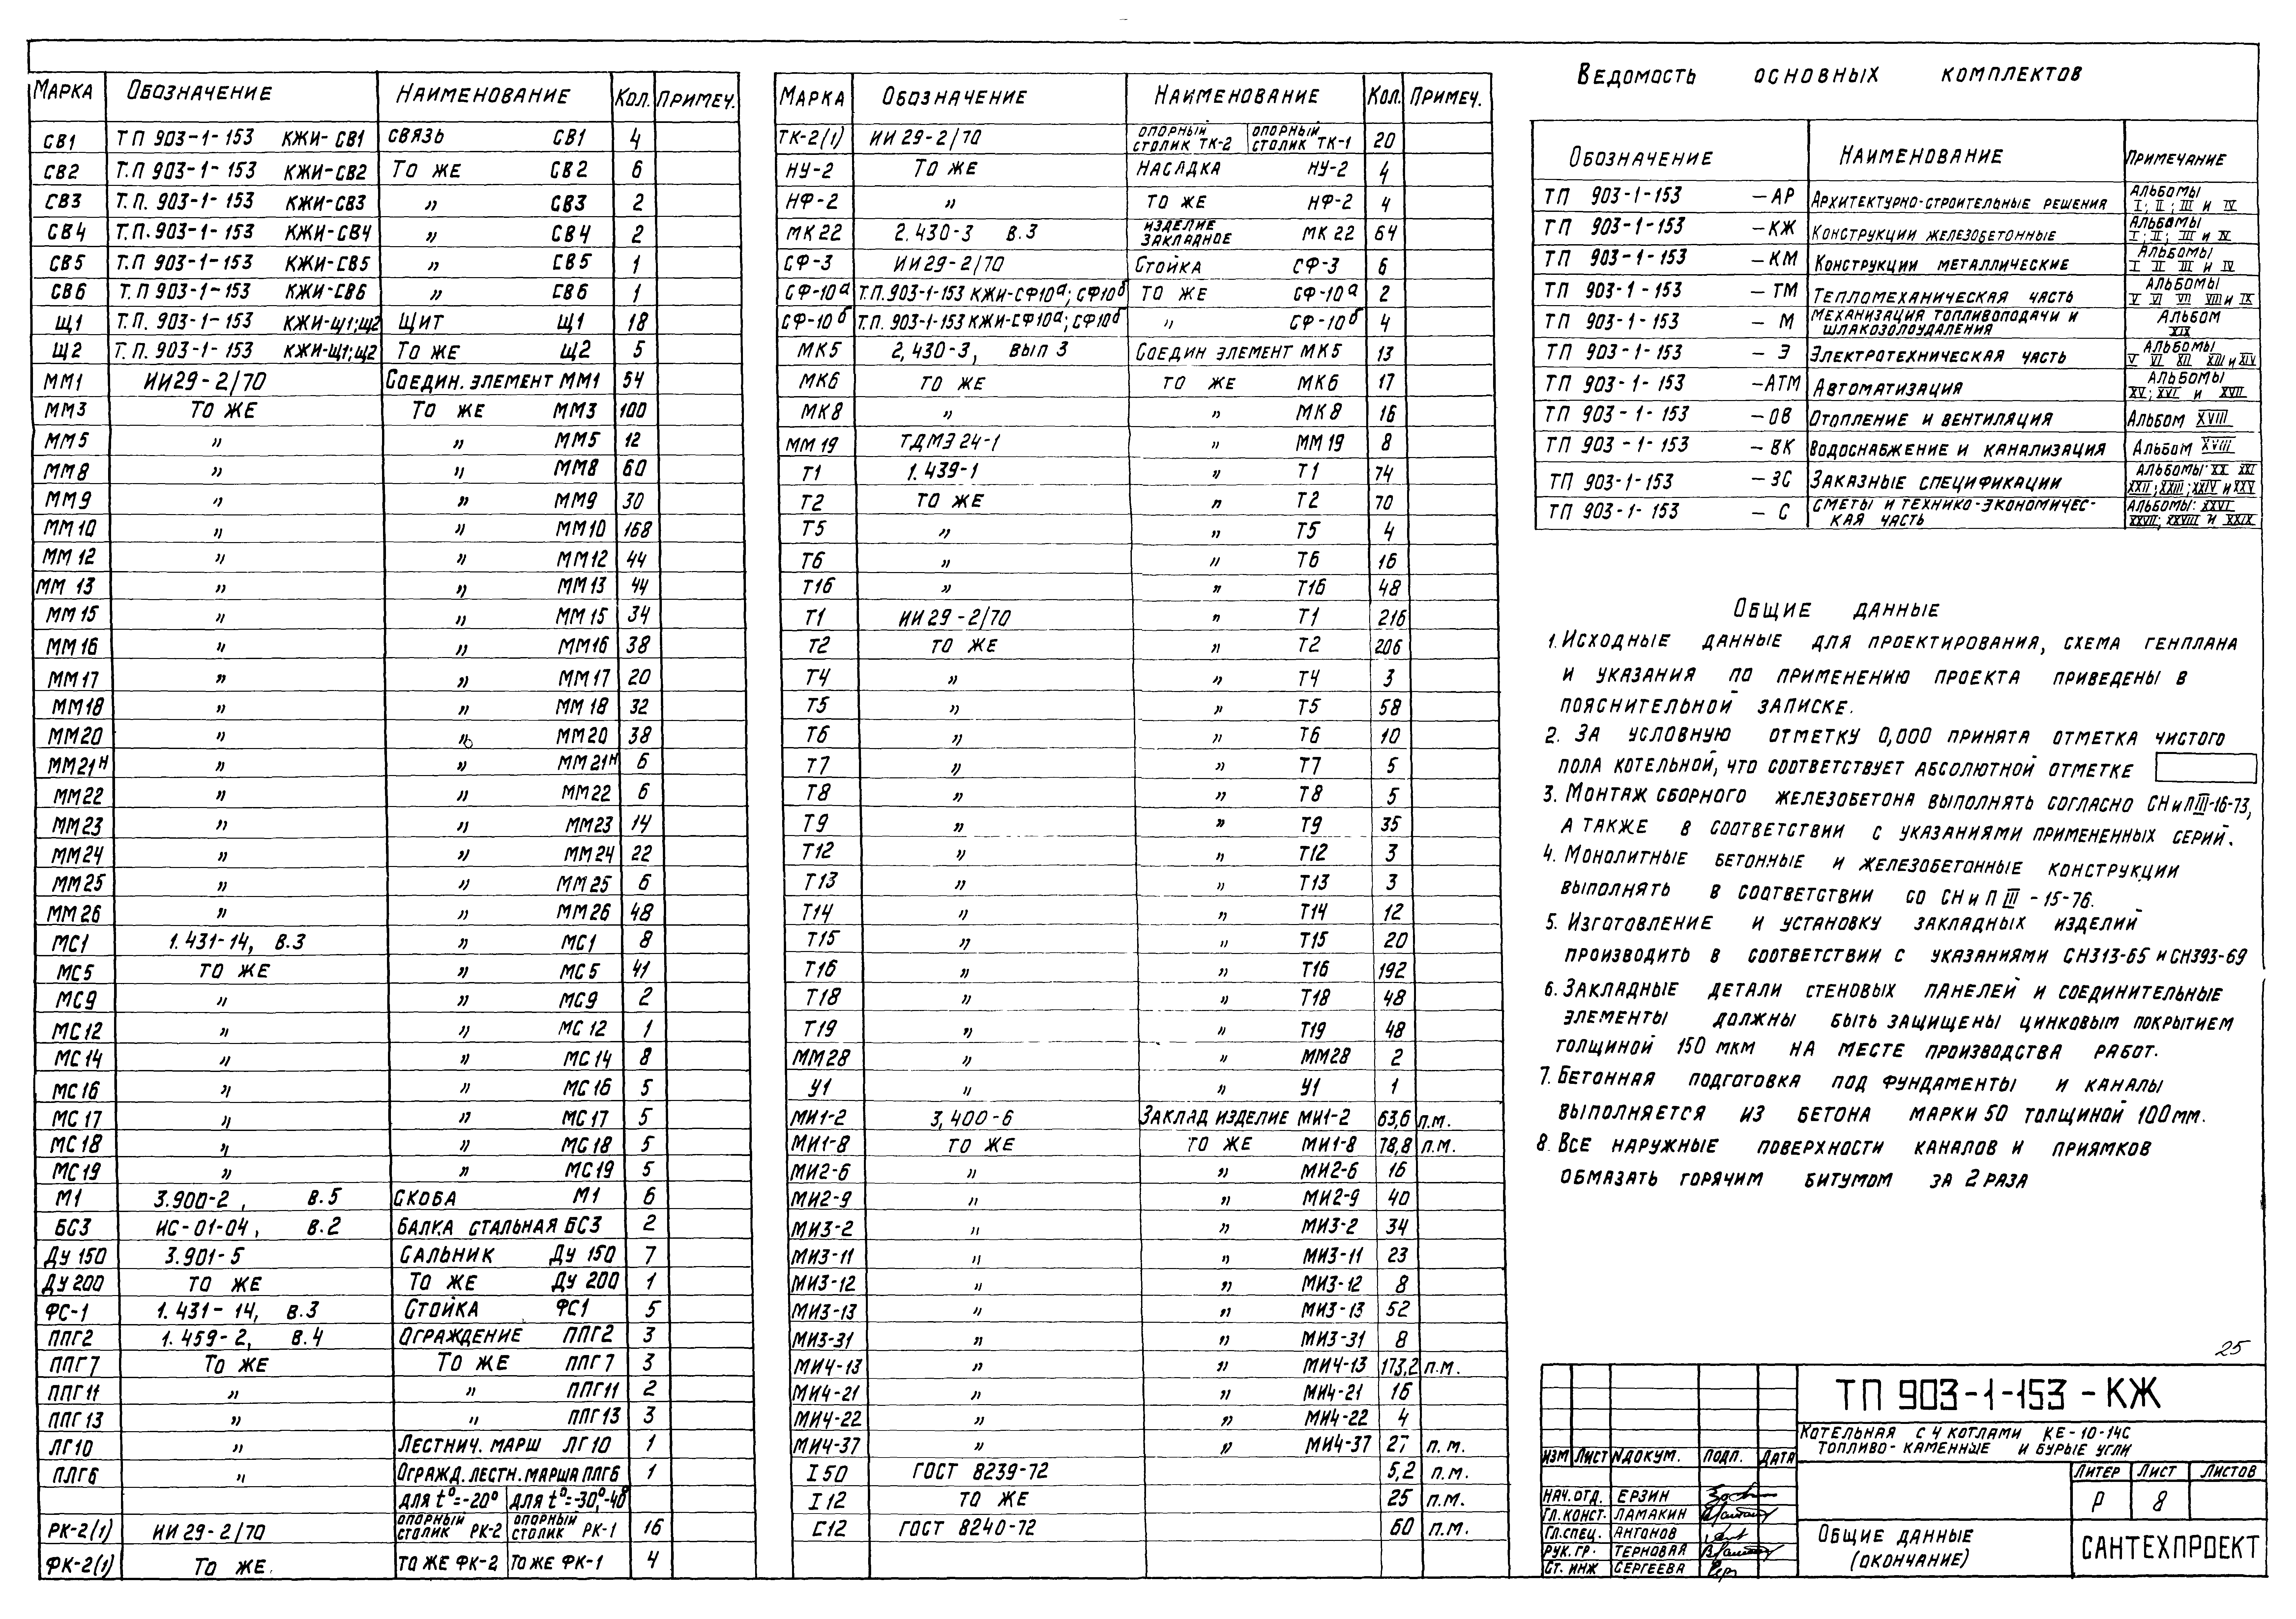 Марка Обозначение Наименование Кол. Примеч.
СВ1 ТП 903-1-153 КЖИ-СВ1 связь СВ1 4
СВ2 Т.П. 903-1-153 КЖИ-СВ2 То же СВ2 6
СВ3 Т.П. 903-1-153 КЖИ-СВ3 " СВ3 2
СВ4 Т.П. 903-1-153 КЖИ-СВ4 " СВ4 2
СВ5 Т.П 903-1-153 КЖИ-СВ5 " СВ5 1
СВ6 Т.П 903-1-153 КЖИ-СВ6 " СВ6 1
Щ1 Т.П. 903-1-153 КЖИ-Щ1;Щ2 Щит Щ1 18
Щ2 Т.П. 903-1-153 КЖИ-Щ1;Щ2 То же Щ2 5
ММ1 ИИ29-2/70 Соедин. элемент ММ1 54
ММ3 То же То же ММ3 100
ММ5 " " ММ5 12
ММ8 " " ММ8 60
ММ9 " " ММ9 30
ММ10 " " ММ10 168
ММ12 " " ММ12 44
ММ13 " " ММ13 44
ММ15 " " ММ15 34
ММ16 " " ММ16 38
ММ17 " " ММ17 20
ММ18 " " ММ18 32
ММ20 " " ММ20 38
ММ21н " " ММ21н 6
ММ22 " " ММ22 6
ММ23 " " ММ23 14
ММ24 " " ММ24 22
ММ25 " " ММ25 6
ММ26 " " ММ26 48
МС1 1.431-14, в.3 " МС1 8
МС5 то же " МС5 41
МС9 " " МС9 2
МС12 " " МС12 1
МС14 " " МС14 8
МС16 " " МС16 5
МС17 " " МС17 5
МС18 " " МС18 5
МС19 " " МС19 5
М1 3.900-2, в.5 скоба М1 6
БС3 ИС-01-04, в.2 балка стальная БС3 2
Ду 150 3.901-5 Сальник Ду 150 7
Ду 200 то же То же Ду 200 1
ФС-1 1.431-14, в.3 Стойка ФС1 5
ППГ2 1.459-2, в.4 Ограждение ППГ2 3
ППГ7 То же То же ППГ7 3
ППГ11 " " ППГ11 2
ППГ13 " " ППГ13 3
ЛГ10 " Лестнич. марш ЛГ10 1
ПЛГ6 " Огражд. лестн. марша ПЛГ6 1
для t°=-20° для t°=-30°,-40°
РК-2(1) ИИ29-2/70 опорный столик РК-2 опорный столик РК-1 16
ФК-2(1) То же. То же ФК-2 То же ФК-1 4
Марка Обозначение Наименование Кол. Примеч.
ТК-2(1) ИИ29-2/70 опорный столик ТК-2 опорный столик ТК-1 20
НУ-2 То же насадка НУ-2 4
НФ-2 " то же НФ-2 4
МК22 2.430-3 в.3 изделие закладное МК22 64
СФ-3 ИИ29-2/70 Стойка СФ-3 6
СФ-10а Т.П.903-1-153 КЖИ-СФ10а; СФ10б то же СФ-10а 2
СФ-10б Т.П. 903-1-153 КЖИ-СФ10а; СФ10б " СФ-10б 4
МК5 2,430-3, вып 3 Соедин элемент МК5 13
МК6 то же то же МК6 17
МК8 " " МК8 16
ММ19 ТДМЭ24-1 " ММ19 8
Т1 1.439-1 " Т1 74
Т2 то же " Т2 70
Т5 " " Т5 4
Т6 " " Т6 16
Т16 " " Т16 48
Т1 ИИ29-2/70 " Т1 216
Т2 то же " Т2 206
Т4 " " Т4 3
Т5 " " Т5 58
Т6 " " Т6 10
Т7 " " Т7 5
Т8 " " Т8 5
Т9 " " Т9 35
Т12 " " Т12 3
Т13 " " Т13 3
Т14 " " Т14 12
Т15 " " Т15 20
Т16 " " Т16 192
Т18 " " Т18 48
Т19 " " Т19 48
ММ28 " " ММ28 2
У1 " " У1 1
МИ1-2 3,400-6 Заклад изделие МИ1-2 63,6 п.м.
МИ1-8 то же то же МИ1-8 78,8 п.м.
МИ2-6 " " МИ2-6 16
МИ2-9 " " МИ2-9 40
МИ3-2 " " МИ3-2 34
МИ3-11 " " МИ3-11 23
МИ3-12 " " МИ3-12 8
МИ3-13 " " МИ3-13 52
МИ3-31 " " МИ3-31 8
МИ4-13 " " МИ4-13 173,2 п.м.
МИ4-21 " " МИ4-21 16
МИ4-22 " " МИ4-22 4
МИ4-37 " " МИ4-37 27 п.м.
I50 ГОСТ 8239-72 5,2 п.м.
I12 то же 25 п.м.
С12 ГОСТ 8240-72 60 п.м.
Ведомость основных комплектов
Обозначение Наименование Примечание
ТП 903-1-153 -АР Архитектурно-строительные решения Альбомы I; II; III и IV
ТП 903-1-153 -КЖ Конструкции железобетонные Альбомы I; II; III и IV
ТП 903-1-153 -КМ Конструкции металлические Альбомы I II III и IV
ТП 903-1-153 -ТМ Тепломеханическая часть Альбомы V VI VII VIII и IX
ТП 903-1-153 -М Механизация топливоподачи и шлакозолоудаления Альбом XIX
ТП 903-1-153 -Э Электротехническая часть Альбомы V VI XII XIII и XIV
ТП 903-1-153 -АТМ Автоматизация Альбомы XV; XVI и XVII
ТП 903-1-153 -ОВ Отопление и вентиляция Альбом XVIII
ТП 903-1-153 -ВК Водоснабжение и канализация Альбом XVIII
ТП 903-1-153 -ЗС Заказные спецификации Альбомы: XX XXI XXII; XXIII; XXIV и XXV
ТП 903-1-153 -С Сметы и технико-экономическая часть Альбомы: XXVI XXVII; XXVIII и XXIX
Общие данные
1. Исходные данные для проектирования, схема генплана
и указания по применению проекта приведены в
пояснительной записке.
2. За условную отметку 0,000 принята отметка чистого
пола котельной, что соответствует абсолютной отметке
3. Монтаж сборного железобетона выполнять согласно СНиПIII-16-73,
а также в соответствии с указаниями примененных серий.
4. Монолитные бетонные и железобетонные конструкции
выполнять в соответствии со СНиП III-15-76.
5. Изготовление и установку закладных изделий
производить в соответствии с указаниями СН313-65 и СН393-69
6. Закладные детали стеновых панелей и соединительные
элементы должны быть защищены цинковым покрытием
толщиной 150 мкм на месте производства работ.
7. Бетонная подготовка под фундаменты и каналы
выполняется из бетона марки 50 толщиной 100мм.
8. Все наружные поверхности каналов и приямков
обмазать горячим битумом за 2 раза
25
ТП 903-1-153-КЖ
Котельная с 4 котлами КЕ-10-14С
топливо-каменные и бурые угли
Изм Лист № докум. Подп. Дата
Литер Лист Листов
Р 8
Нач. отд. Ерзин
Гл. конст. Ламакин
Гл. спец. Антонов
Рук. гр. Терновая
Ст. инж Сергеева
Общие данные
(окончание)
САНТЕХПРОЕКТ